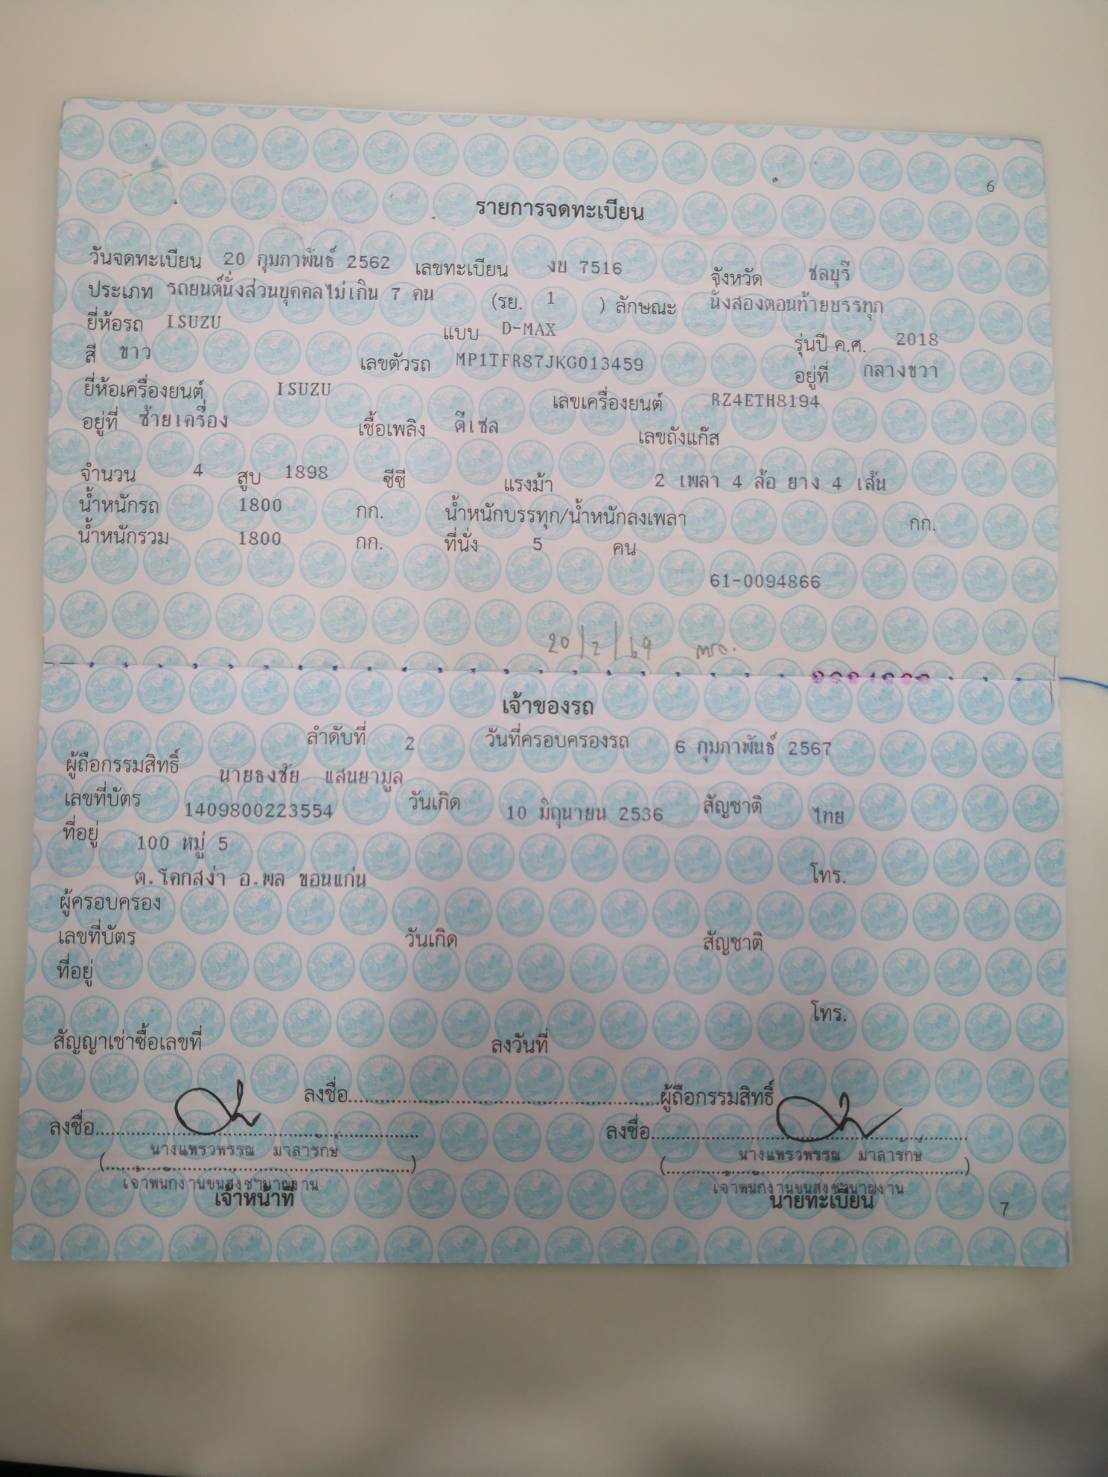 6
รายการจดทะเบียน
วันจดทะเบียน 20 กุมภาพันธ์ 2562 เลขทะเบียน งข 7516 จังหวัด ชลบุรี
ประเภท รถยนต์นั่งส่วนบุคคลไม่เกิน 7 คน (รย. 1 ) ลักษณะ นั่งสองตอนท้ายบรรทุก
ยี่ห้อรถ ISUZU แบบ D-MAX รุ่นปี ค.ศ. 2018
สี ขาว เลขตัวรถ MP1TFR87JKG013459 อยู่ที่ กลางขวา
ยี่ห้อเครื่องยนต์ ISUZU เลขเครื่องยนต์ RZ4ETH8194
อยู่ที่ ซ้ายเครื่อง เชื้อเพลิง ดีเซล เลขถังแก๊ส
จำนวน 4 สูบ 1898 ซีซี แรงม้า 2 เพลา 4 ล้อ ยาง 4 เส้น
น้ำหนักรถ 1800 กก. น้ำหนักบรรทุก/น้ำหนักลงเพลา กก.
น้ำหนักรวม 1800 กก. ที่นั่ง 5 คน
61-0094866
20/2/69
เจ้าของรถ
ลำดับที่ 2 วันที่ครอบครองรถ 6 กุมภาพันธ์ 2567
ผู้ถือกรรมสิทธิ์ นายธงชัย แสนยามูล
เลขที่บัตร 1409800223554 วันเกิด 10 มิถุนายน 2536 สัญชาติ ไทย
ที่อยู่ 100 หมู่ 5
ต.โคกสง่า อ.พล ขอนแก่น โทร.
ผู้ครอบครอง
เลขที่บัตร วันเกิด สัญชาติ
ที่อยู่
โทร.
สัญญาเช่าซื้อเลขที่ ลงวันที่
ลงชื่อ............ผู้ถือกรรมสิทธิ์
ลงชื่อ............ ลงชื่อ............
(นางแพรวพรรณ มาลารักษ์) (นางแพรวพรรณ มาลารักษ์)
เจ้าพนักงานขนส่งชำนาญงาน เจ้าพนักงานขนส่งชำนาญงาน
เจ้าหน้าที่ นายทะเบียน
7